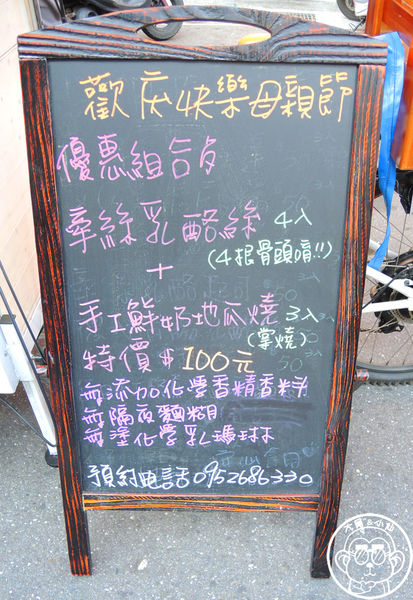 歡庆快樂母親節
優惠組合
牽絲乳酪絲 4入
(4根骨頭唷!!)
+
手工鮮奶地瓜燒 3入
(掌燒)
特價$100元
無添加化學香精香料
無隔夜麵糊
無塗化學乳瑪琳
預約電話0952686330